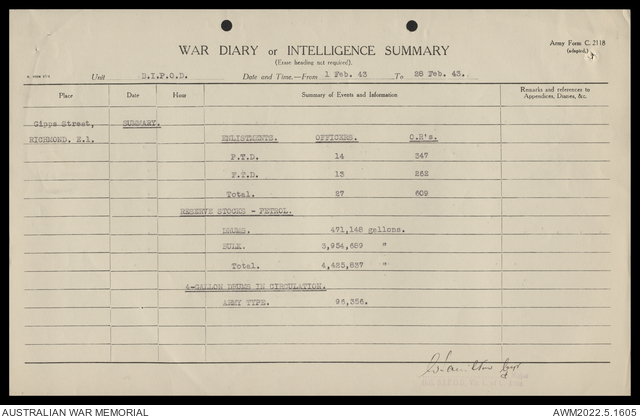 Army Form C. 2118
(adapted.)
WAR DIARY or INTELLIGENCE SUMMARY
(Erase heading not required).
Unit D.I.P.O.D. Date and Time.—From 1 Feb. 43 To 28 Feb. 43.
Place Date Hour Summary of Events and Information Remarks and references to Appendices, Diaries, &c.
Gipps Street, SUMMARY.
RICHMOND. E.1. ENLISTMENTS. OFFICERS. O.R's.
P.T.D. 14 347
F.T.D. 13 262
Total. 27 609
RESERVE STOCKS - PETROL.
DRUMS. 471,148 gallons.
BULK. 3,954,689 "
Total. 4,425,837 "
4-GALLON DRUMS IN CIRCULATION.
ARMY TYPE. 96,356.
AUSTRALIAN WAR MEMORIAL AWM2022.5.1605